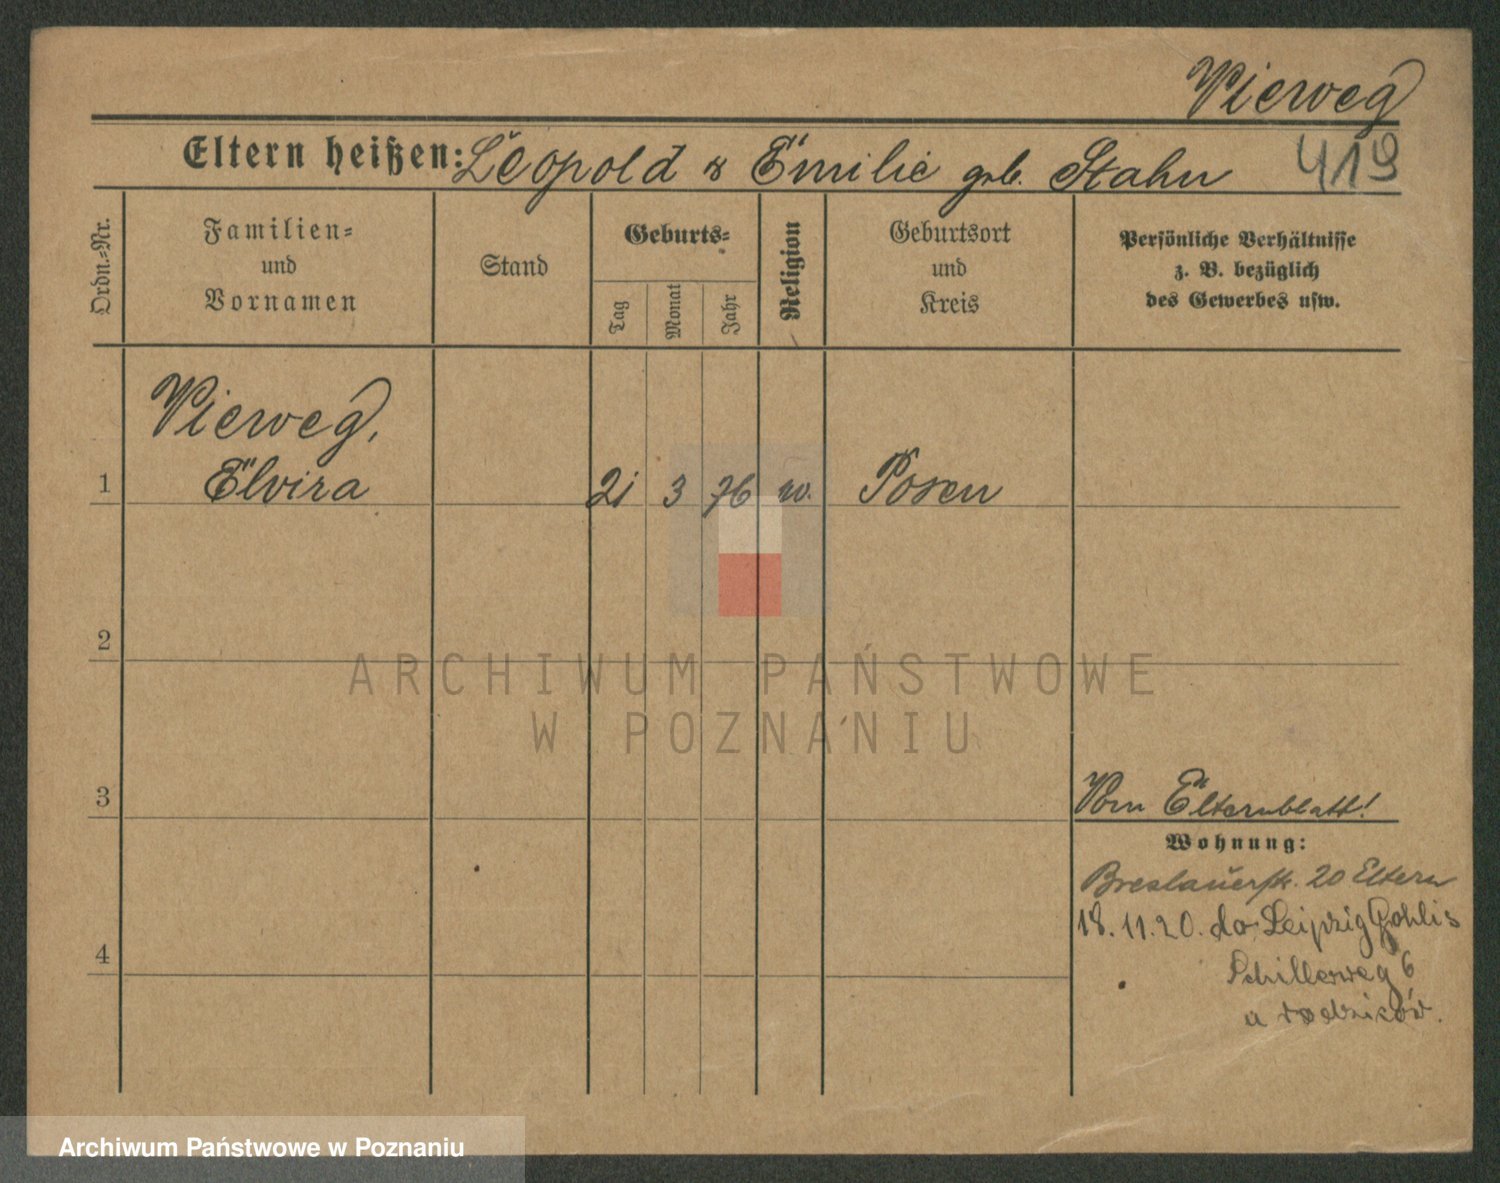 Vierweg
Eltern heißen: Leopold & Emilie geb. Stahn
419
Ordn.-Nr.
Familien-
und
Vornamen
Stand
Geburts-
Tag
Monat
Jahr
Religion
Geburtsort
und
Kreis
Persönliche Verhältnisse
z. B. bezüglich
des Gewerbes usw.
Vierweg,
1 Elvira 21 3 76 Posen
2
ARCHIWUM PAŃSTWOWE
W POZNANIU
3
Vom Elternblatt!
Wohnung:
Breslauerstr. 20 Eltern
18.11.20. do Leipzig Gohlis
4
Schillerweg 6
u rodziców.
Archiwum Państwowe w Poznaniu